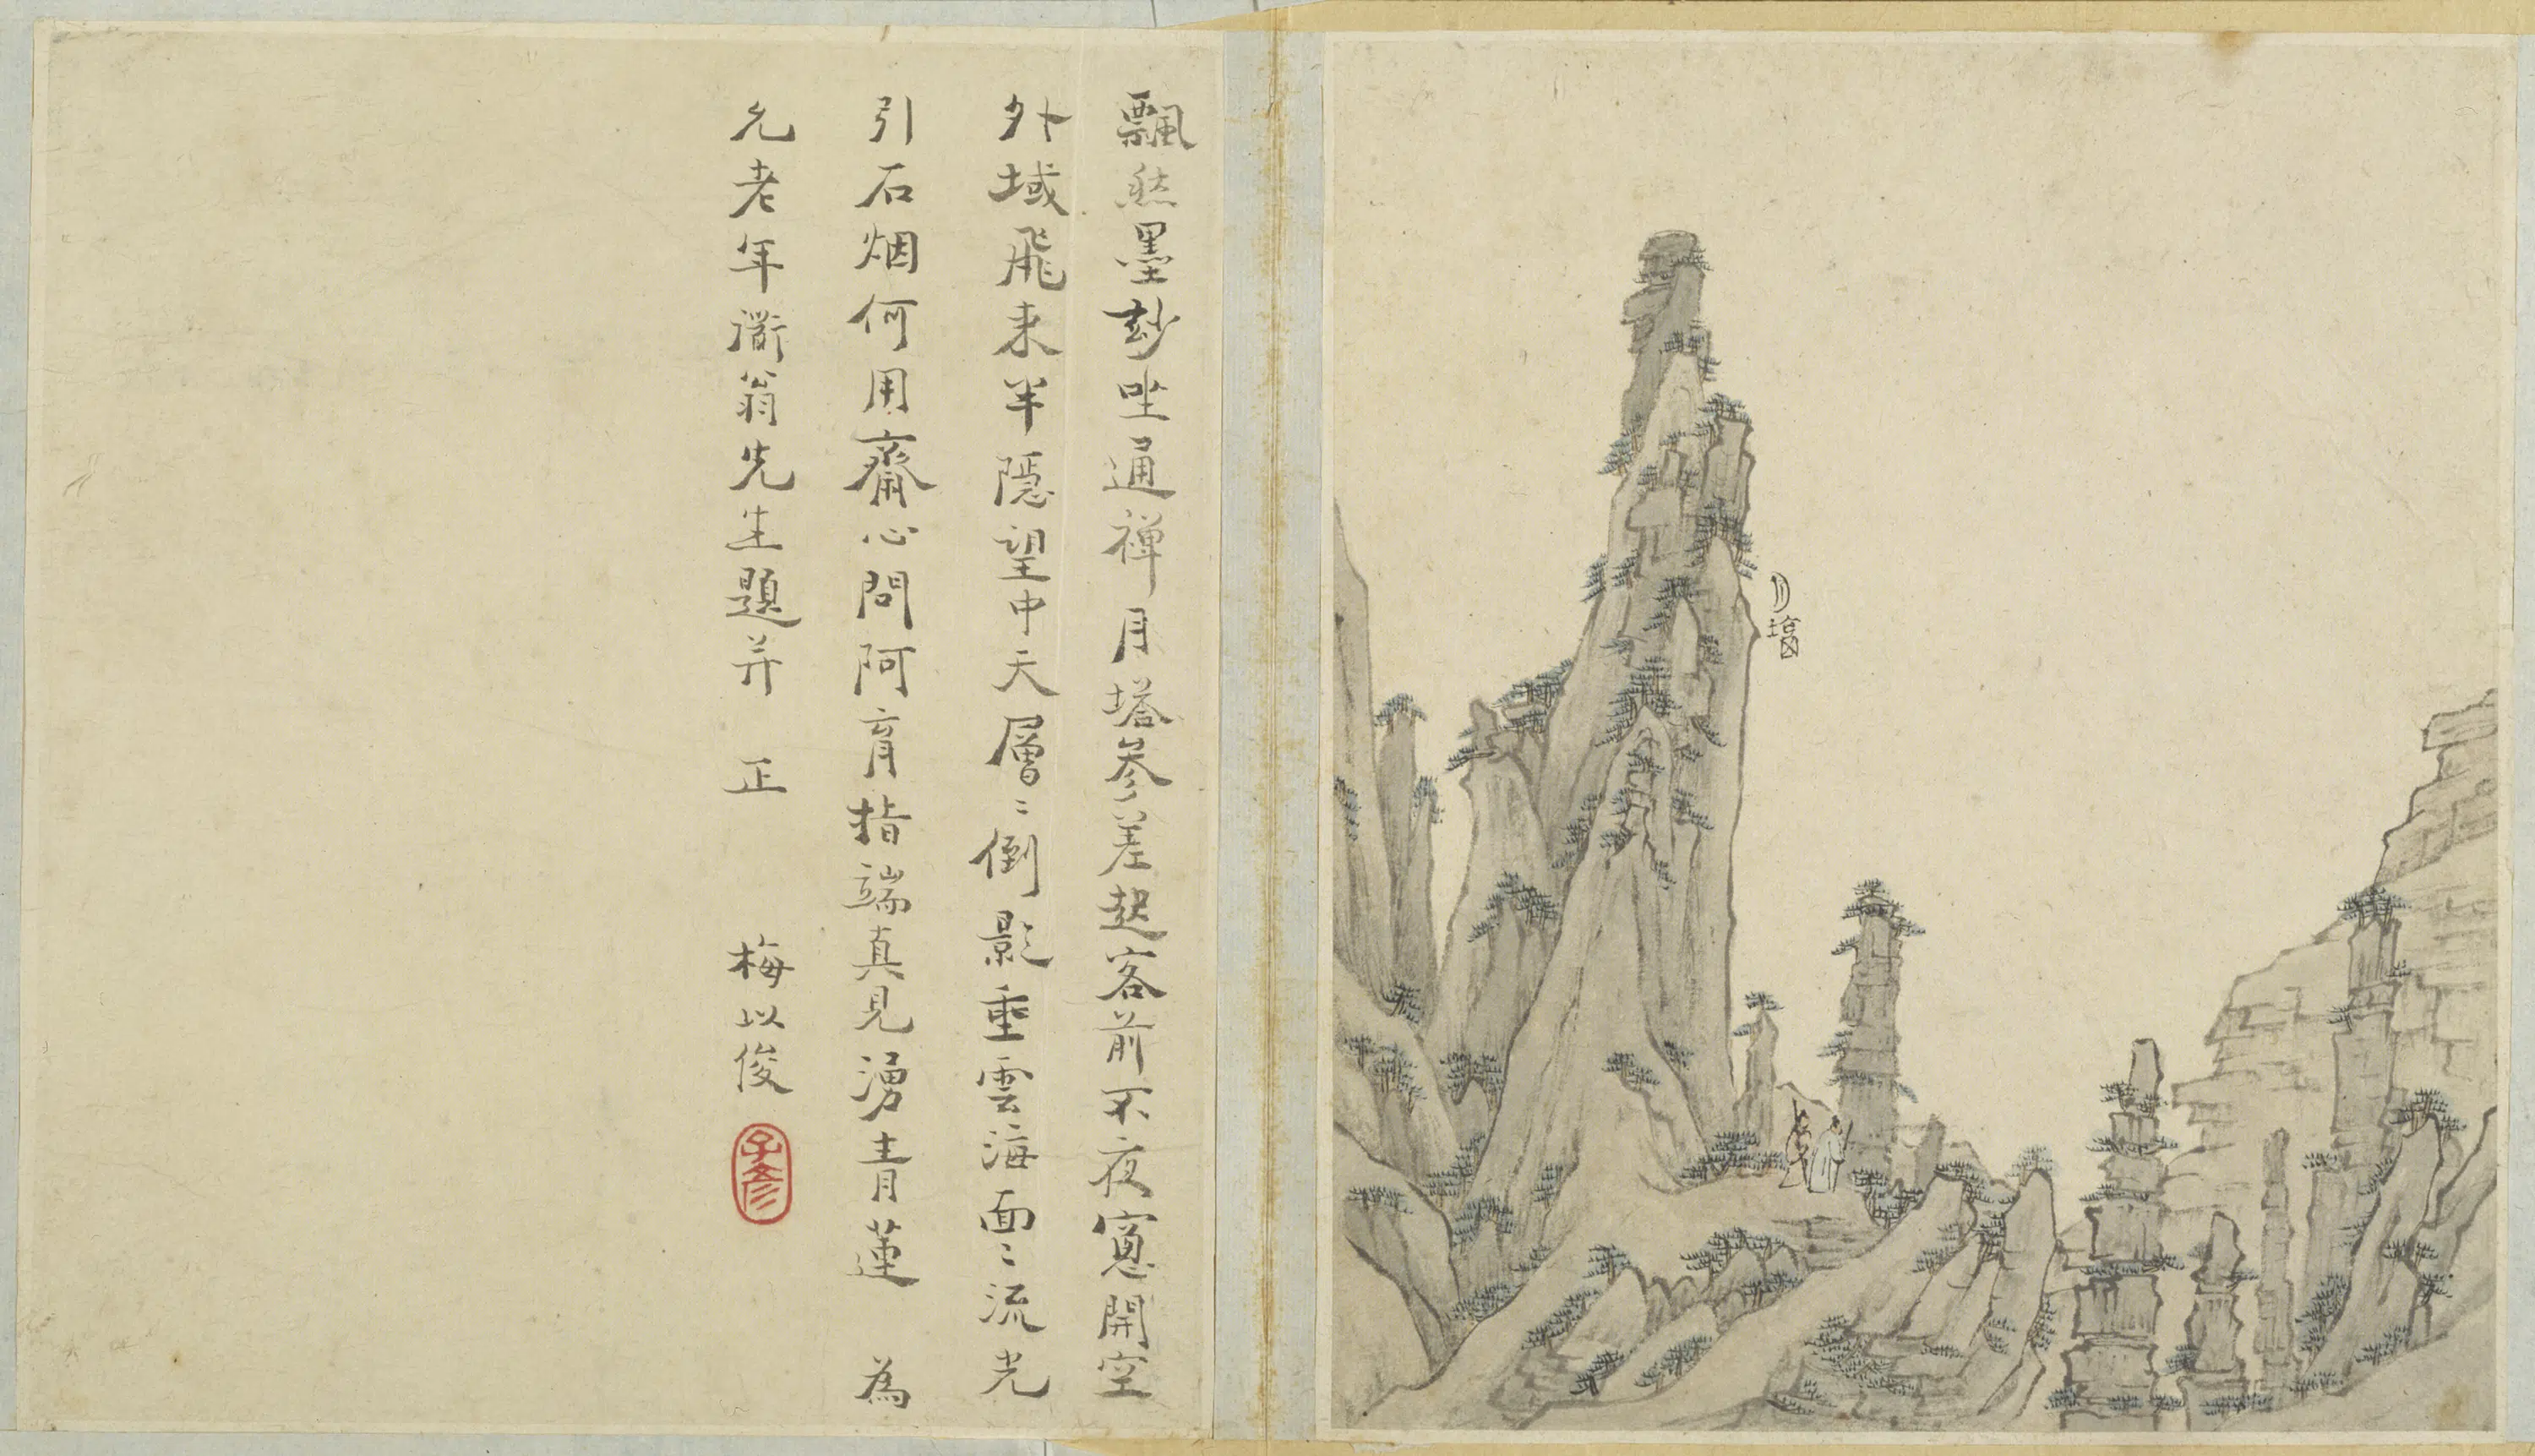 月塔
飄然墨玅坐通禪月塔參差起客前不夜窻開空
外域飛来半隱望中天層〻倒影重雲海面〻流光
引石烟何用齋心問阿育指端真見湧青蓮 為
允老年衜翁先生題并 正 梅以俊
子彥